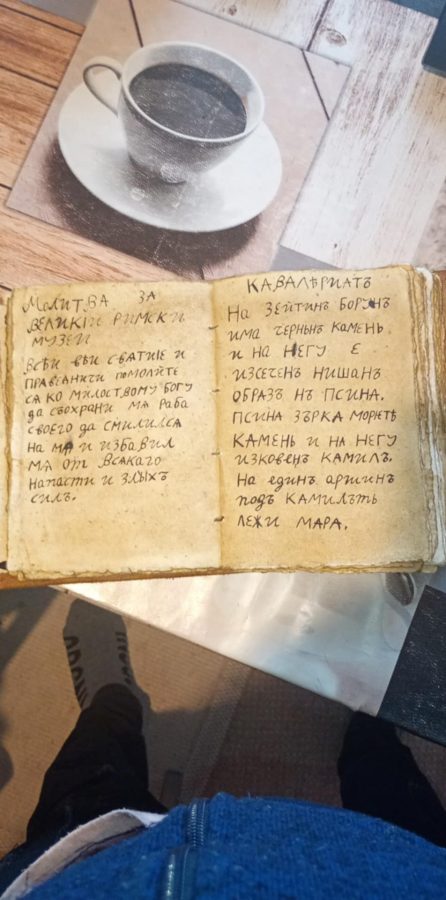 Молитва за
великіи римски
музеи
Всѣи вѣи сватие и
правеаничи помолйте
ся ко милоствому богу
да сьохрани мя раба
своего да смилился
на мя и избавил
мя от всакаго
напасти и злыхъ
силъ.
КАВАЛѢРИАТЪ
На зейтинъ борунъ
има чернынъ камень
и на негу е
изсеченъ нишанъ
образъ нъ псина.
псина зърка морѥтѣ
камень и на негу
изковенъ камилъ.
На единъ аршинъ
подъ камилътъ
лежи мара.